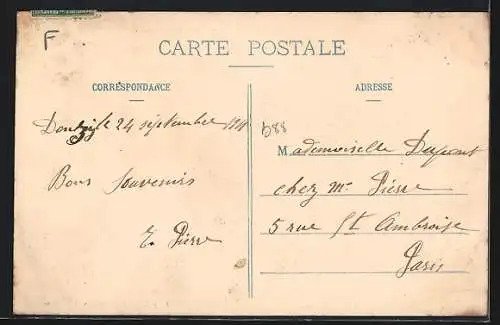 F
CARTE POSTALE
CORRESPONDANCE
ADRESSE
le 24 septembre
Bons Souvenirs
E. Pierre
688
Mademoiselle Dupont
chez Mr Pierre
5 rue St Ambroise
Paris